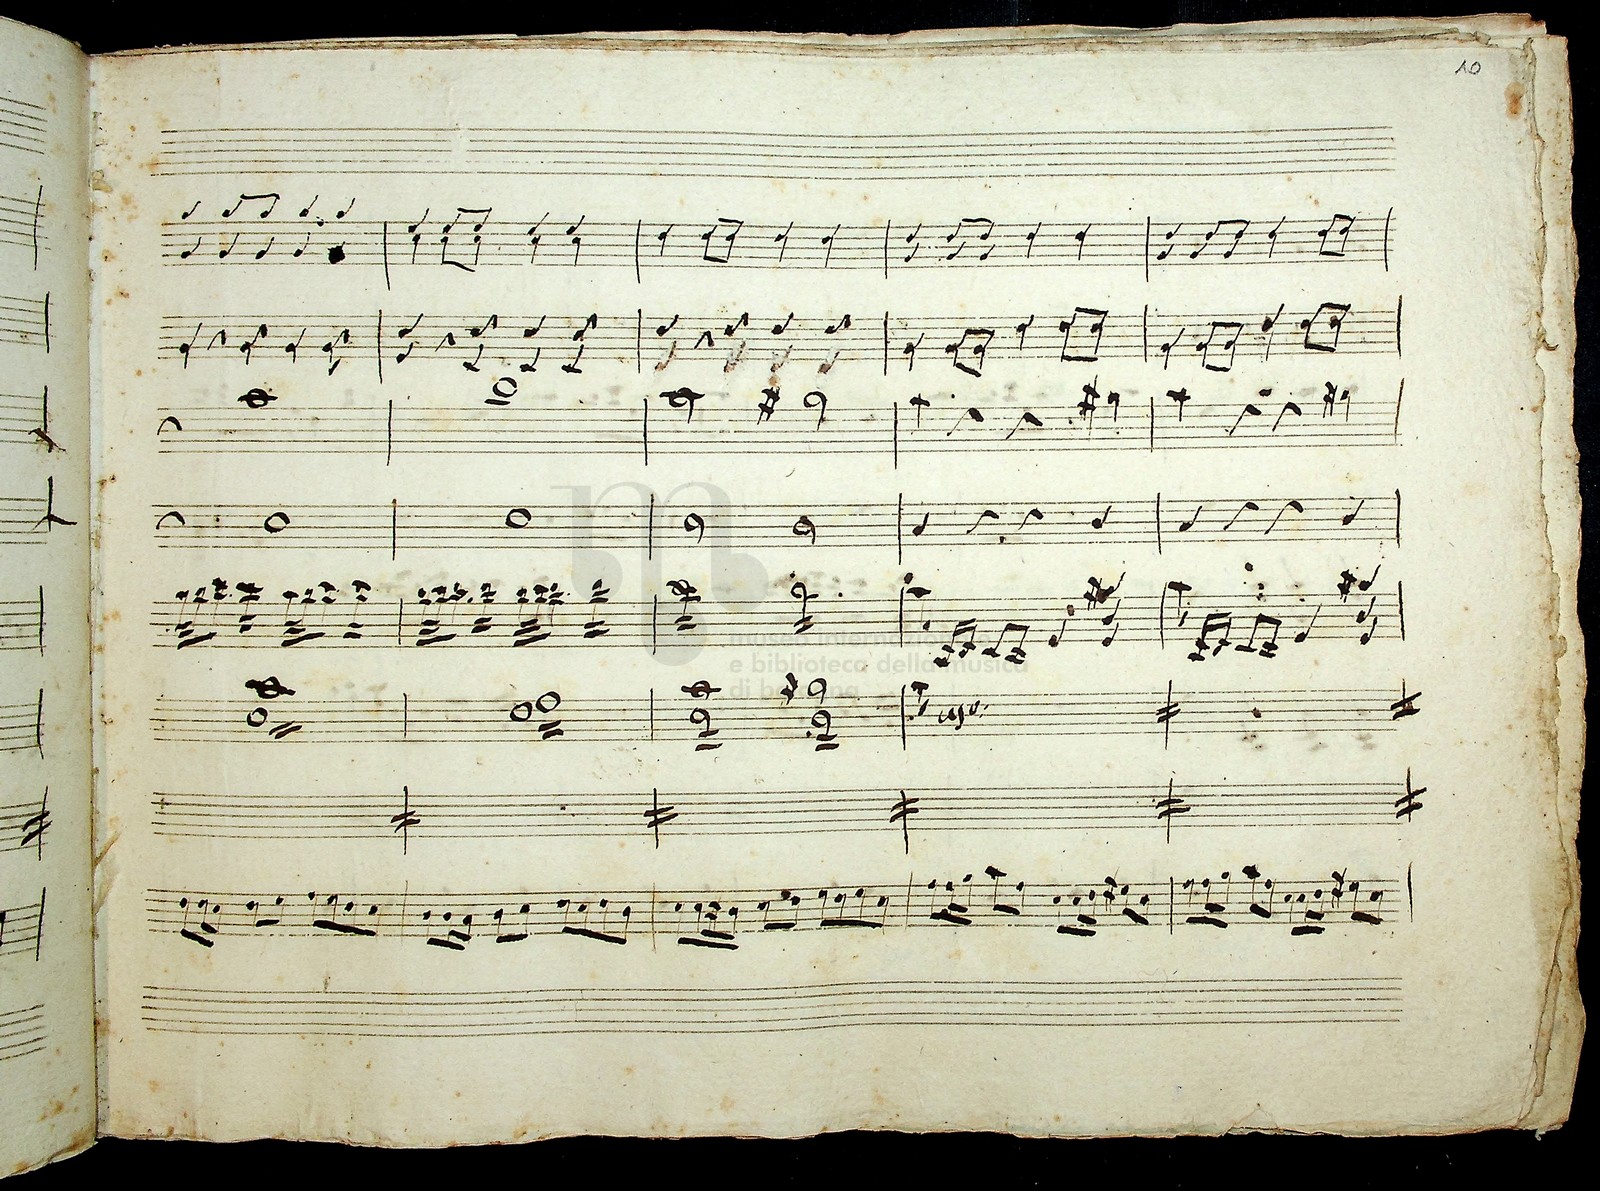 10
m
museo internazionale
e biblioteca della musica
di bologna
unis: